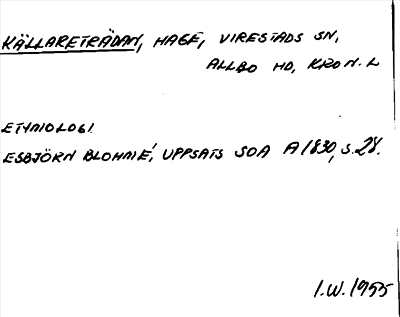 KÄLLARETRÄDAN, HAGE, VIRESTADS SN,
ALLBO HD, KRON. L
ETYMOLOGI.
ESBJÖRN BLOHMÉ, UPPSATS SOA A 1830, S. 28.
I.W. 1955